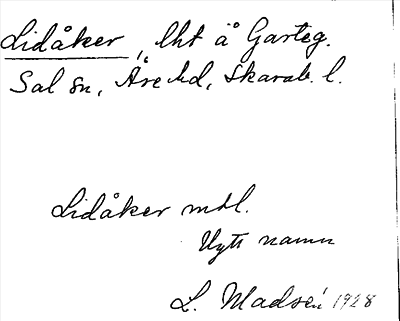 Lidåker, lht å Garteg.
Sal sn, Åse hd, Skarab. l.
Lidåker mdl.
Nytt namn
L. Madsén 1928